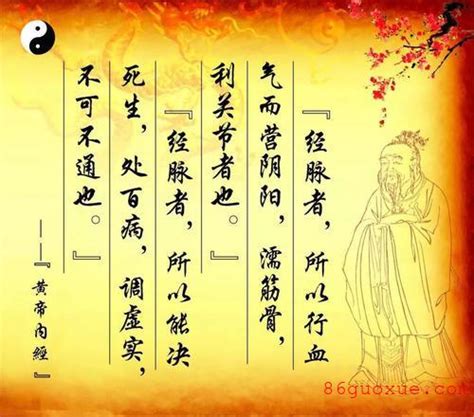 『经脉者，所以行血
气而营阴阳，濡筋骨，
利关节者也。』
『经脉者，所以能决
死生，处百病，调虚实，
不可不通也。』
——『黄帝内經』
86guoxue.com